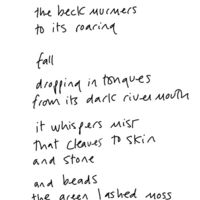 the beck murmers
to its roaring
fall
dropping in tongues
from its dark river mouth
it whispers mist
that cleaves to skin
and stone
and beads
the green lashed moss